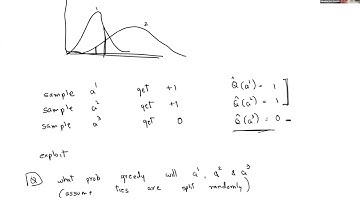 1
2
sample a¹ get +1
sample a² get +1
sample a³ get 0
Q̂(a¹) = 1
Q̂(a²) = 1
Q̂(a³) = 0
exploit
Q what prob greedy will a¹, a² & a³
(assume ties are split randomly)